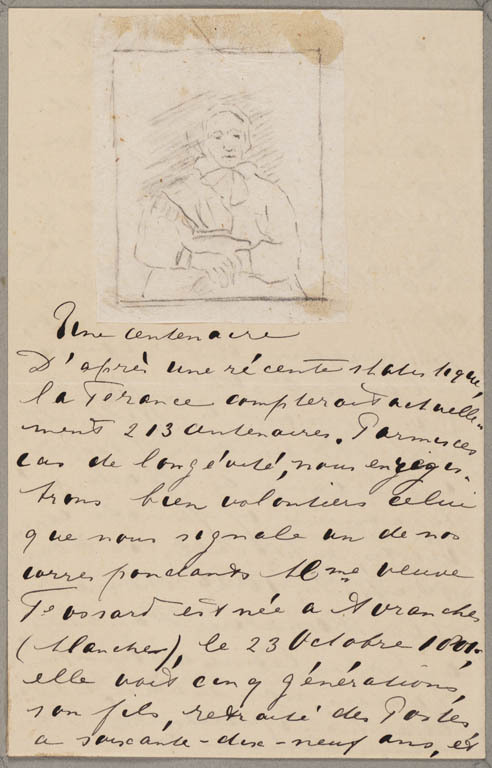 Une centenaire
D'après une récente statistique,
la France compterait actuelle-
ment 213 centenaires. Parmi ces
cas de longévité, nous enregis-
trons bien volontiers celui
que nous signale un de nos
correspondants Mme veuve
est née à Avranches
(Manche), le 23 Octobre
elle voit cinq générations,
son fils, retraité des Postes
a soixante-dix-neuf ans, est